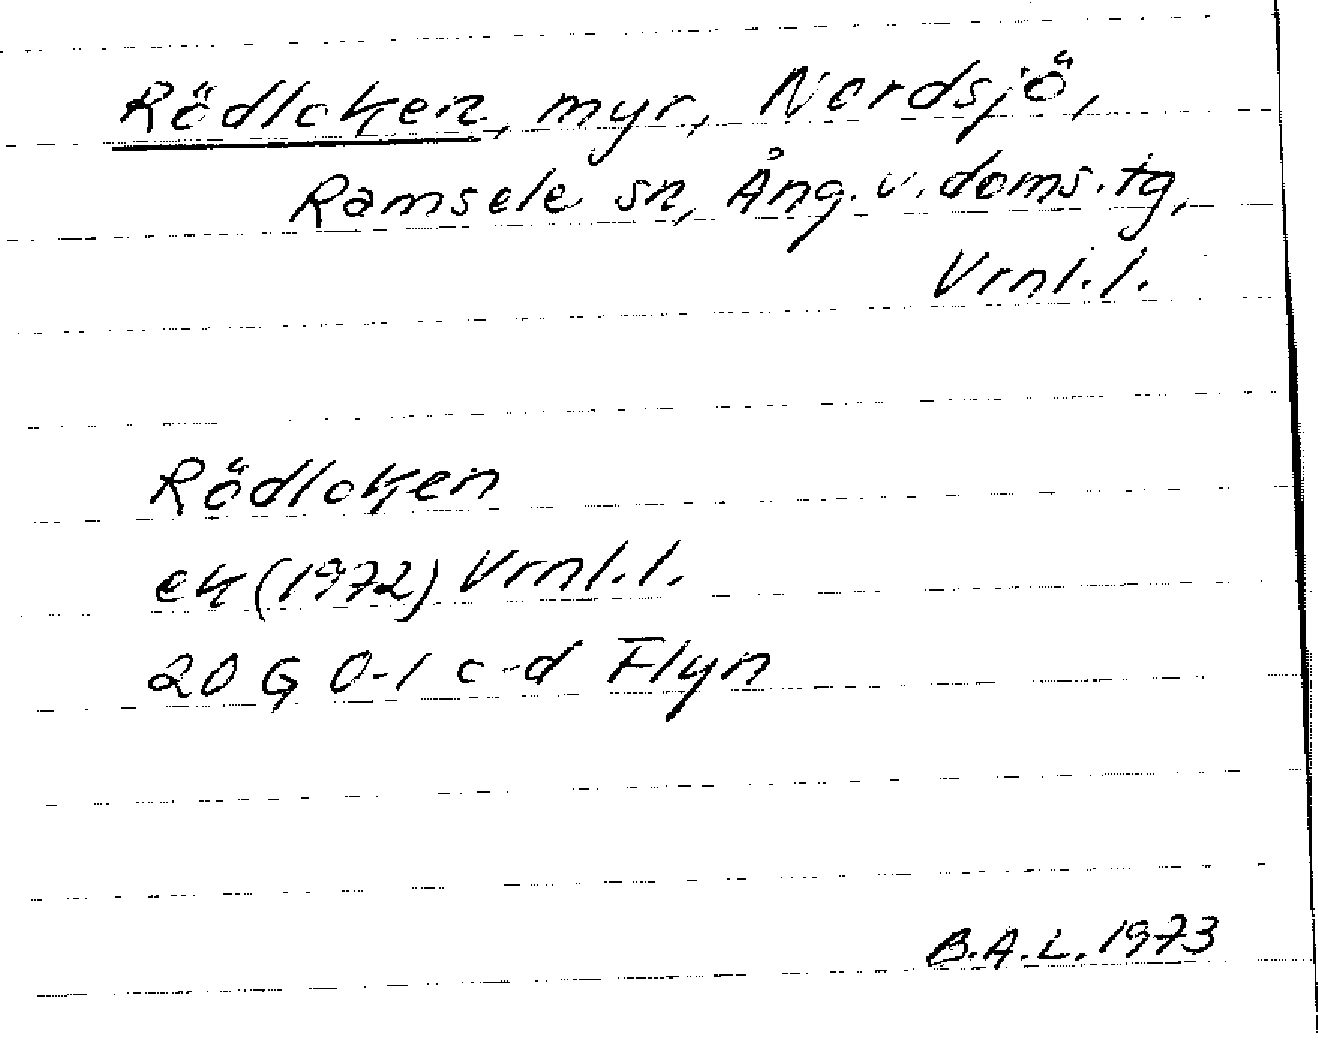 Rödloken, myr, Nordsjö,
Ramsele sn, Ång. v. doms. tg,
Vrnl. l.
Rödloken
ek (1972) Vrnl. l.
20 G 0-1 c-d Flyn
B.A.L. 1973